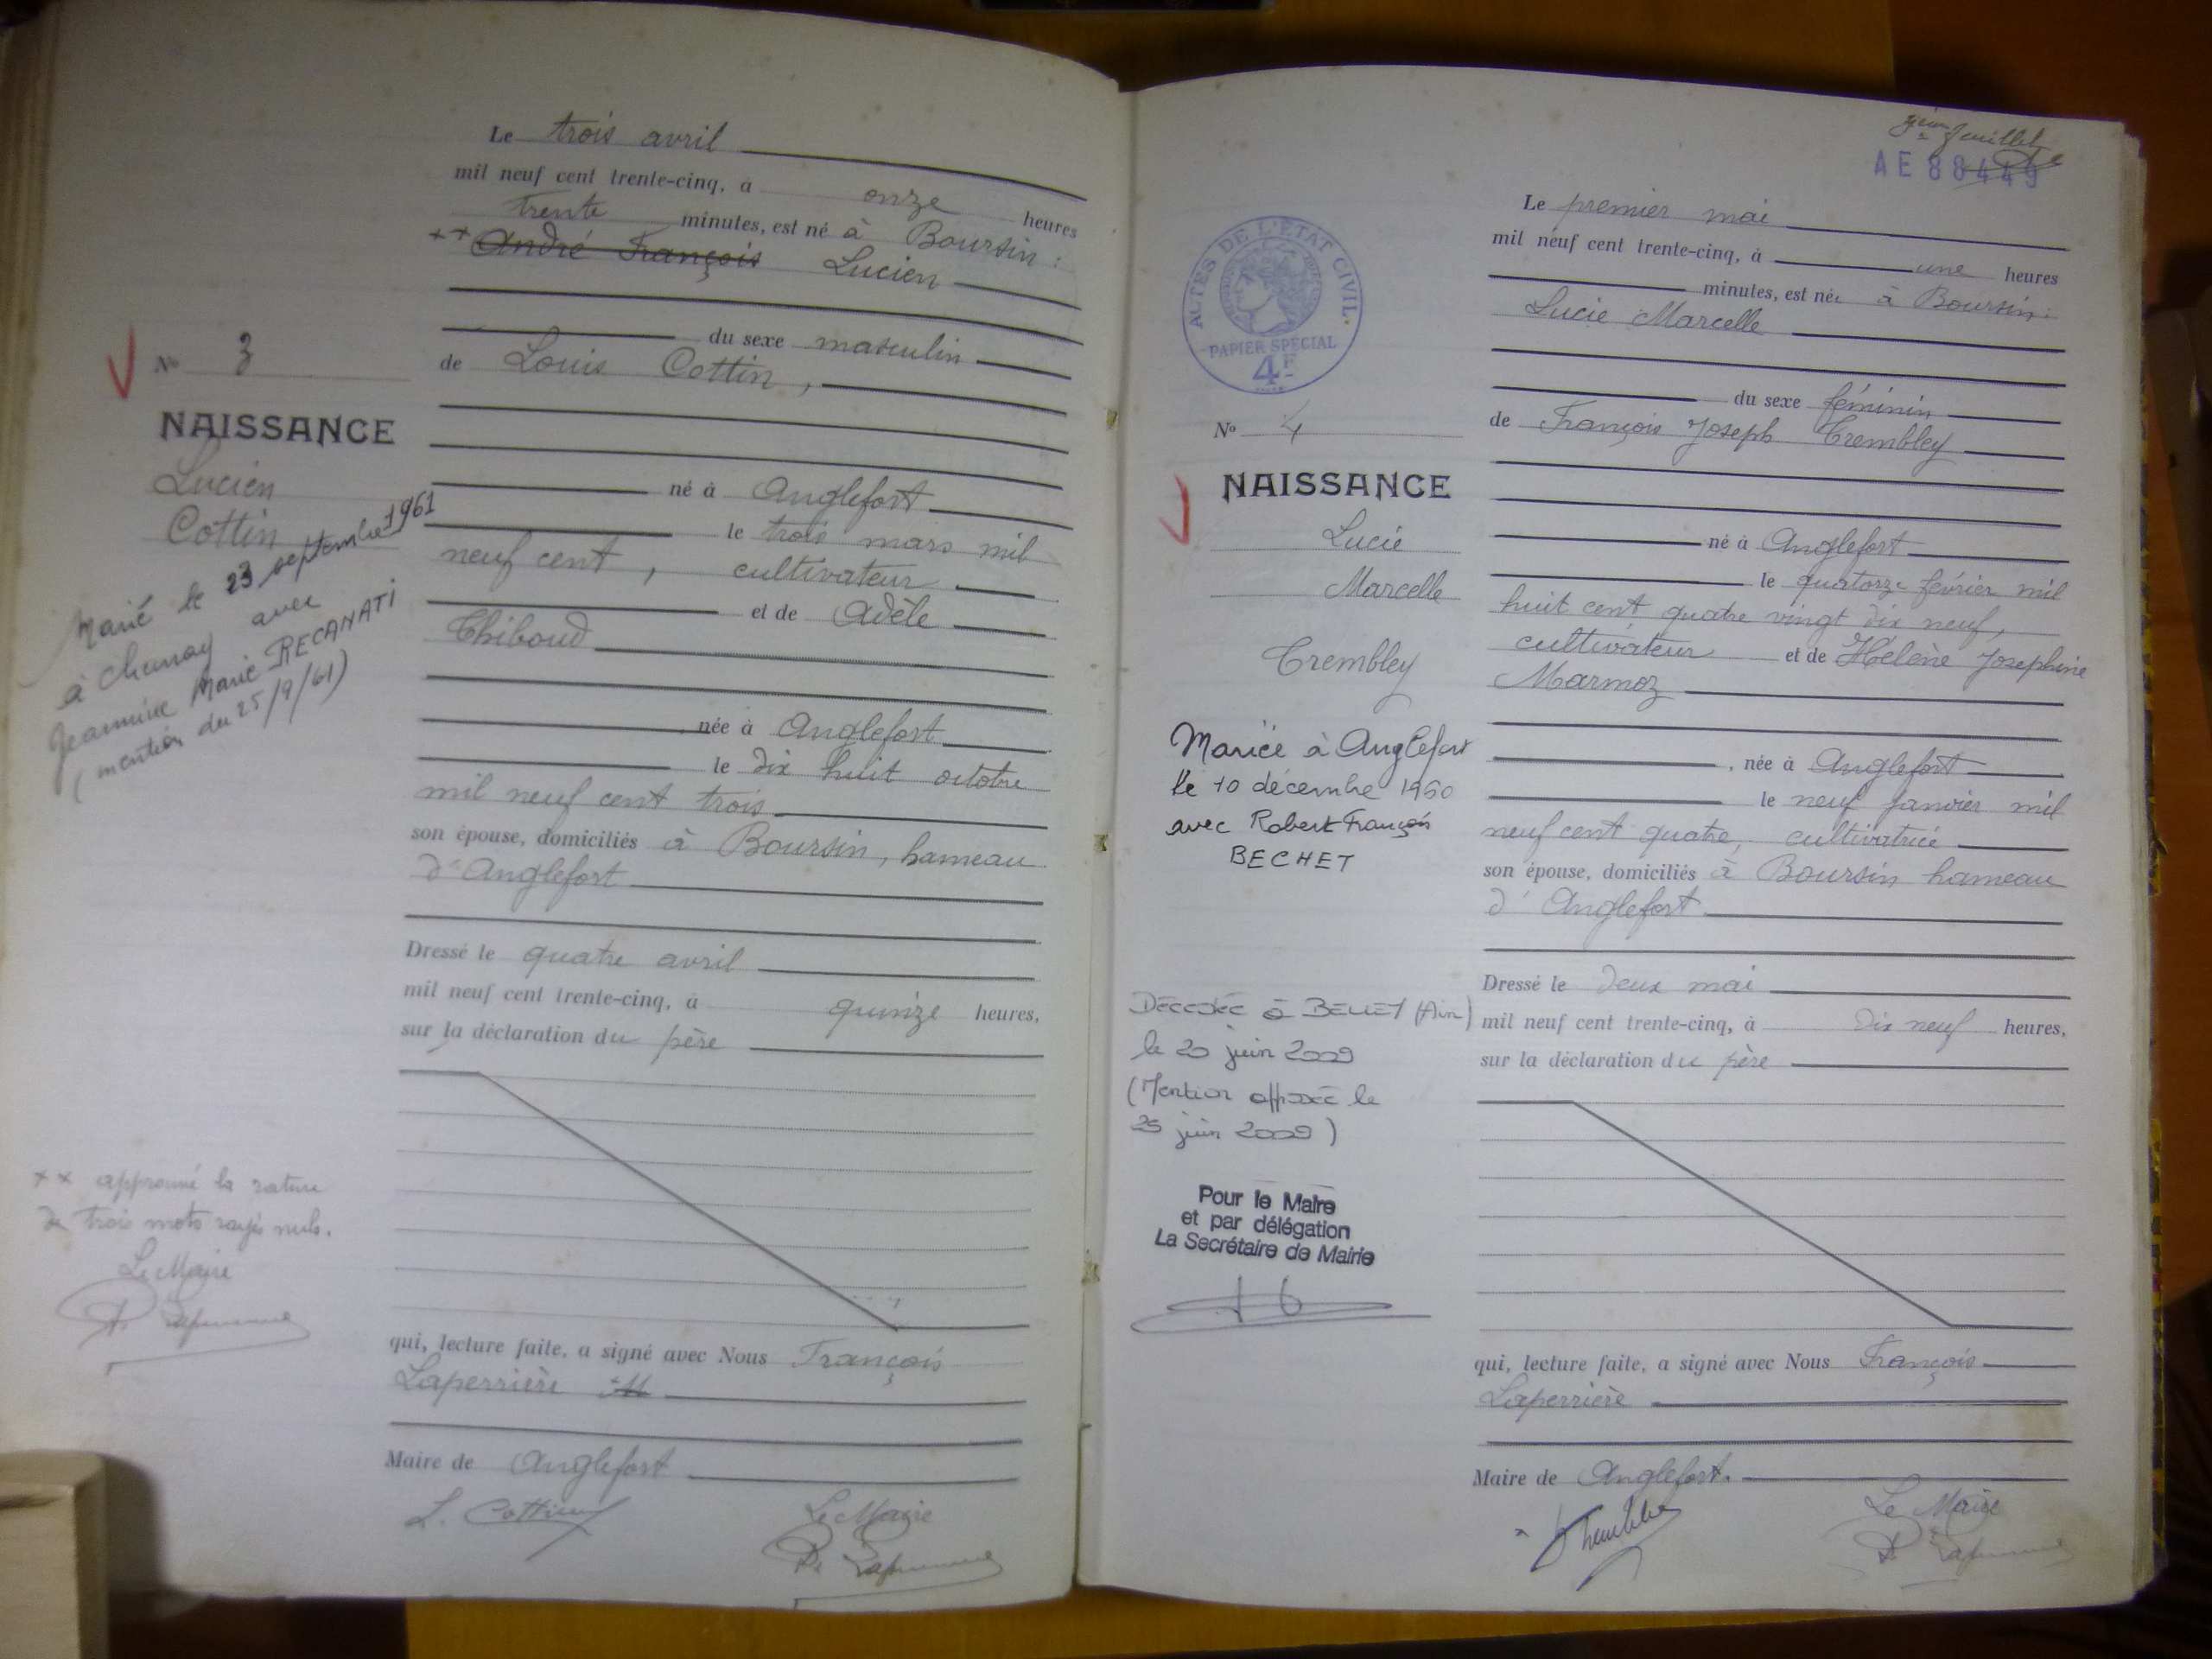 Le trois avril
mil neuf cent trente-cinq, à onze heures
trente minutes, est né à Boursin :
++ André François Lucien
du sexe masculin
de Louis Cottin,
né à Anglefort
le trois mars mil
neuf cent, cultivateur
et de Adèle
Thiboud
née à Anglefort
le dix huit octobre
mil neuf cent trois
son épouse, domiciliés à Boursin, hameau
d'Anglefort
Dressé le quatre avril
mil neuf cent trente-cinq, à quinze heures,
sur la déclaration du père
qui, lecture faite, a signé avec Nous François
Laperrière
Maire de Anglefort
L. Cottin
Le Maire
No 3
NAISSANCE
Lucien
Cottin
Marié le 23 septembre 1961
à Chunay avec
Jeannine Marie RECANATI
(mention du 25/9/61)
++ approuvé la rature
de trois mots rayés nuls.
Le Maire
feuillet
AE 88449
ACTES DE L'ÉTAT CIVIL
PAPIER SPÉCIAL
4F
Le premier mai
mil neuf cent trente-cinq, à une heures
minutes, est née à Boursin:
Lucie Marcelle
du sexe féminin
de François Joseph Trembley
né à Anglefort
le quatorze février mil
huit cent quatre vingt dix neuf,
cultivateur et de Hélène Joséphine
Marmoz
, née à Anglefort
le neuf janvier mil
neuf cent quatre, cultivatrice
son épouse, domiciliés à Boursin hameau
d'Anglefort
Dressé le deux mai
mil neuf cent trente-cinq, à dix neuf heures,
sur la déclaration du père
qui, lecture faite, a signé avec Nous François
Laperrière
Maire de Anglefort.
Le Maire
No 4
NAISSANCE
Lucie
Marcelle
Trembley
Mariée à Anglefort
le 10 décembre 1960
avec Robert François
BECHET
Décédée à BELLEY (Ain)
le 20 juin 2009
(Mention apposée le
25 juin 2009)
Pour le Maire
et par délégation
La Secrétaire de Mairie